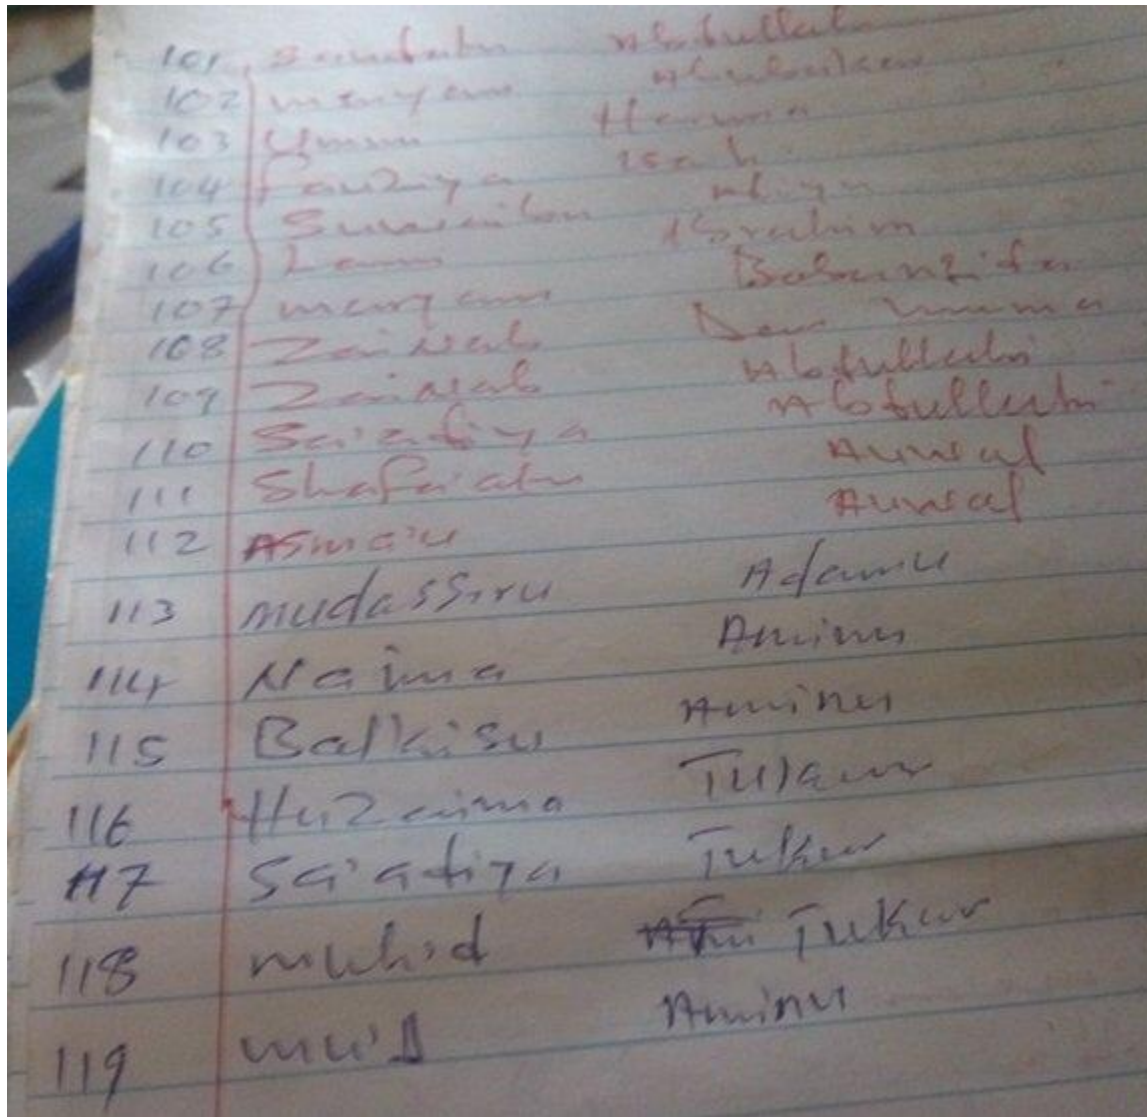 101 Saudatu Abdullahi
102 maryam Abubakar
103 Ummu Haruna
104 fauziya Isah
105 Suwaiba Aliyu
106 Lami Ibrahim
107 maryam Babangida
108 Zainab Dan
109 Zainab Abdullahi
110 Sa'adiya Abdullahi
111 Shafa'atu Auwal
112 Asma'u Auwal
113 mudassiru Adamu
114 Naima Aminu
115 Balkisu Aminu
116 Huzaima Tukur
117 Sa'adiya Tukur
118 muhid Tukur
119 Aminu